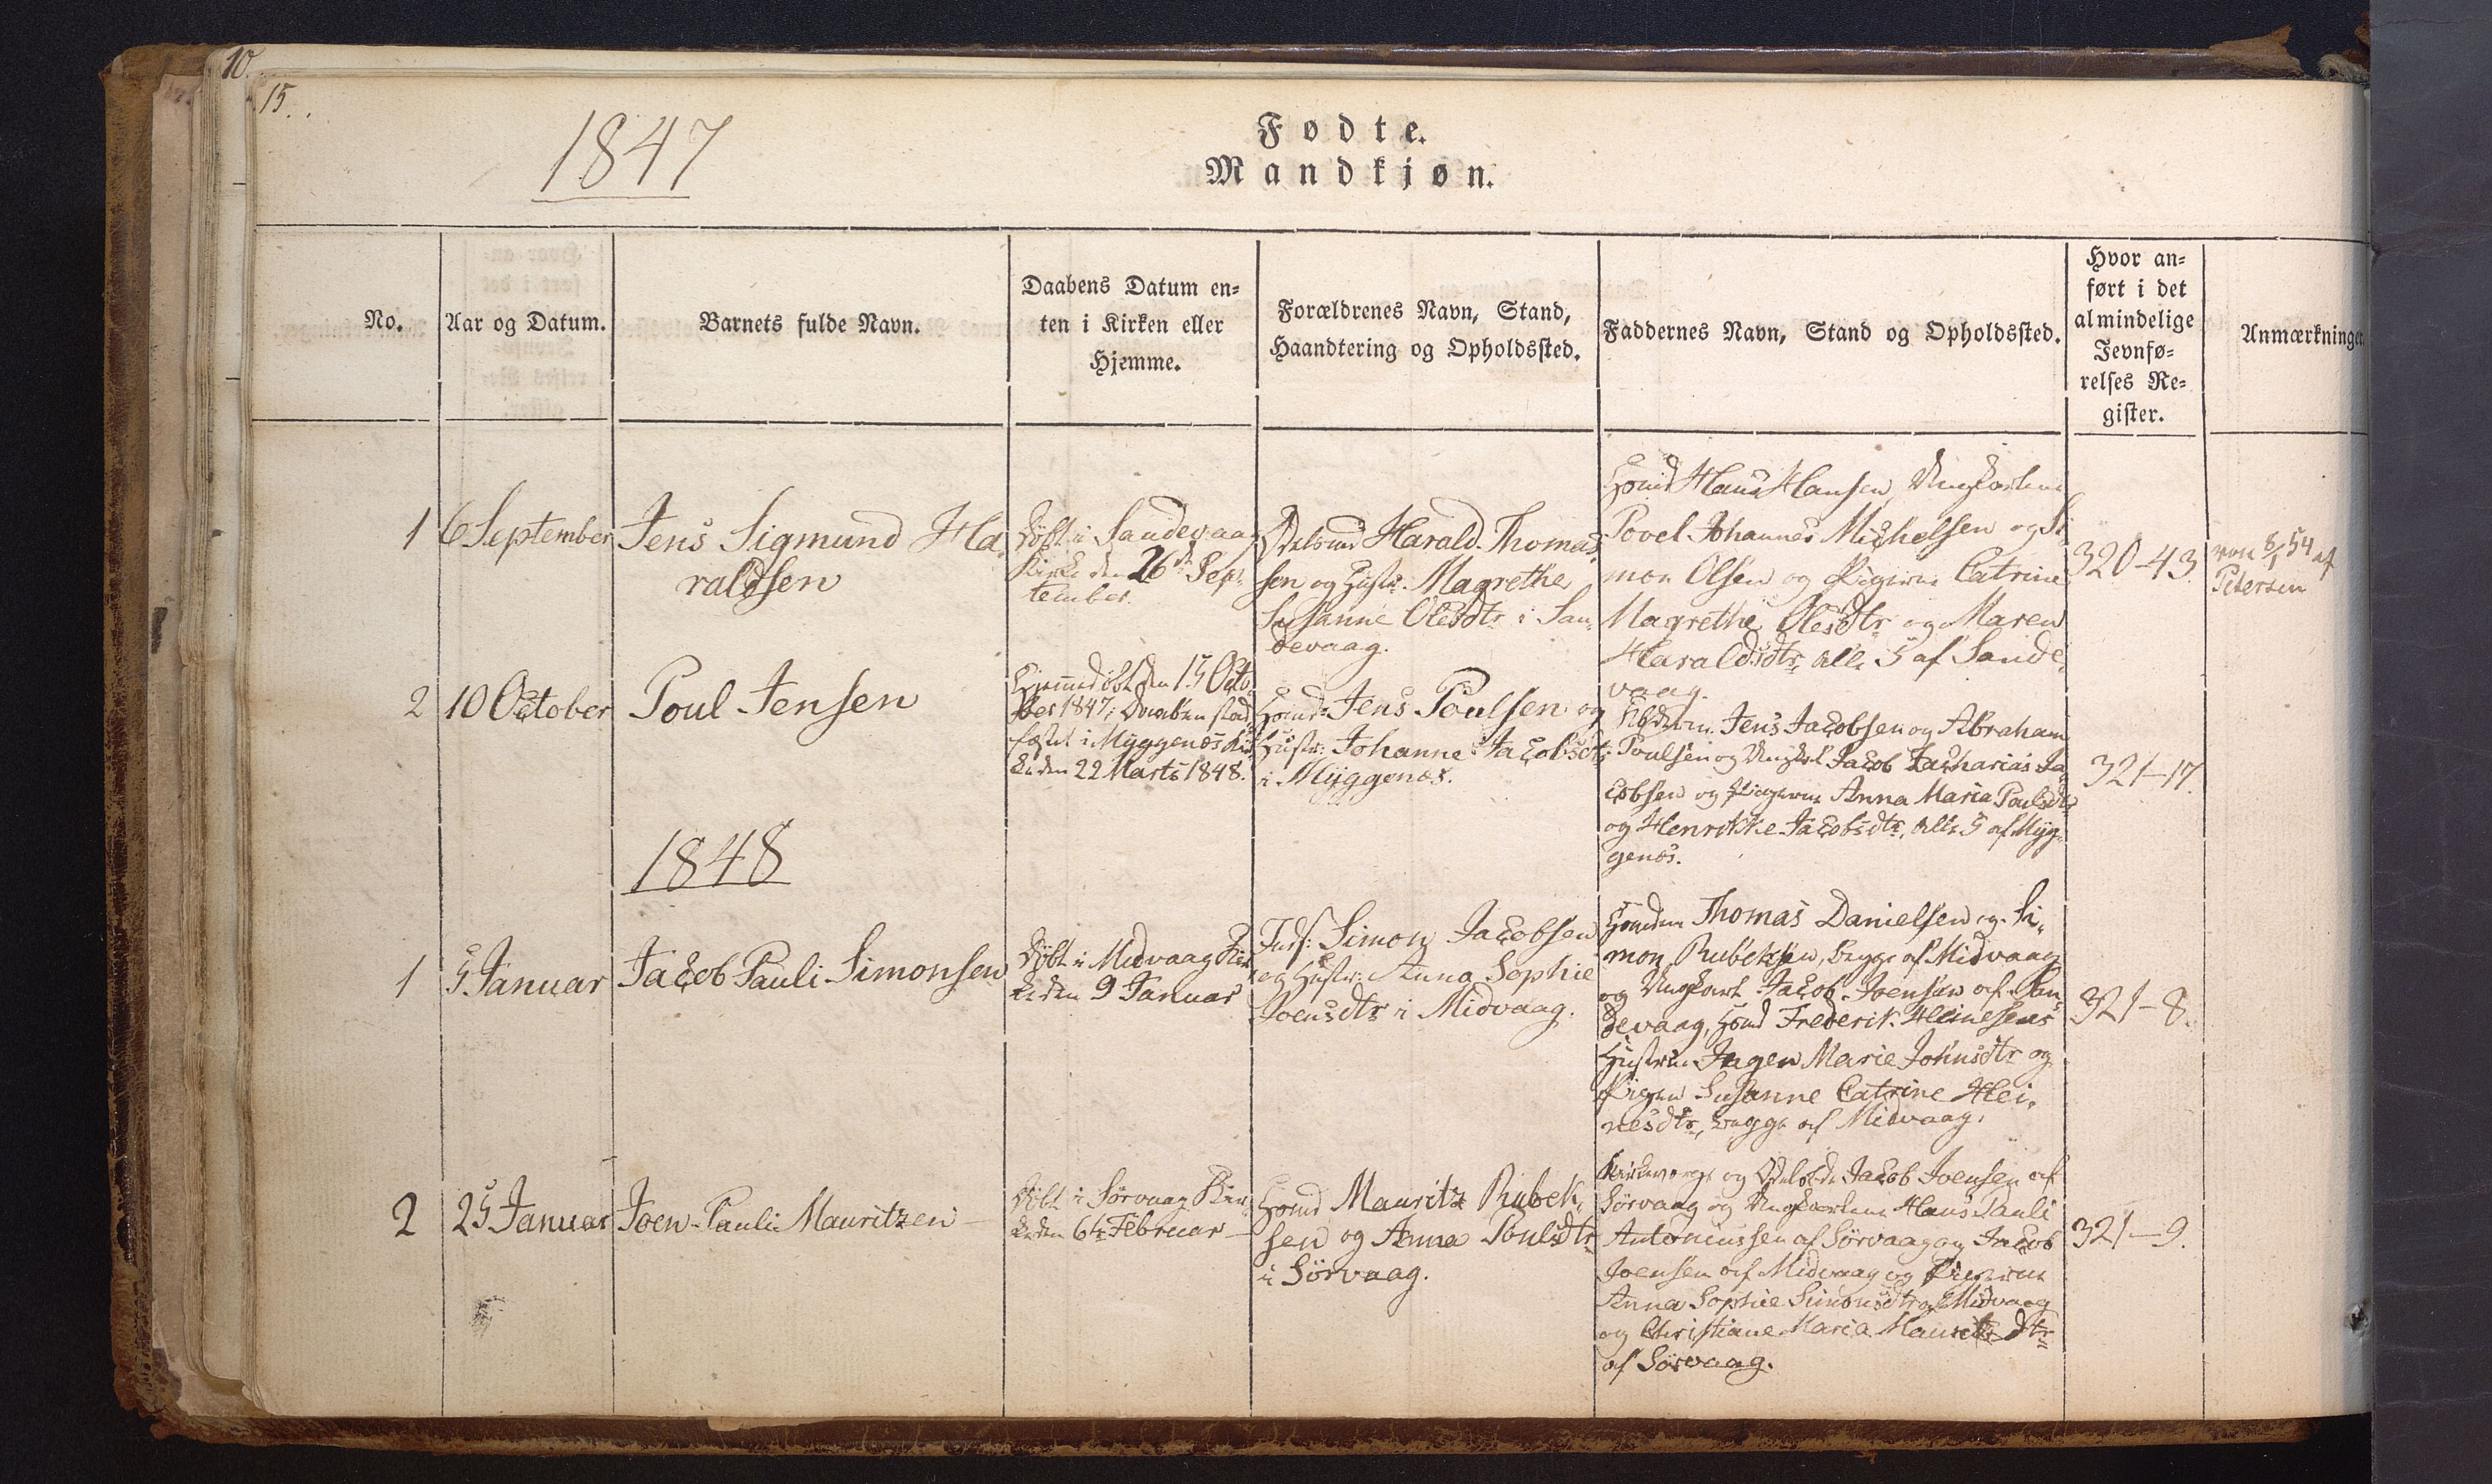 10.
15.
1847
Fødte.
Mandkjøn.
No.
Aar og Datum.
Barnets fulde Navn.
Daabens Datum en-
ten i Kirken eller
Hjemme.
Forældrenes Navn, Stand,
Haandtering og Opholdssted.
Faddernes Navn, Stand og Opholdssted.
Hvor an-
ført i det
almindelige
Jevnfø-
relses Re-
gister.
Anmærkninger.
1
6 September
Jens Sigmund Ha
raldsen
Døbt i Sandevaag
Kirke den 26de Sep-
tember.
Harald Thomas-
sen og Hustr. Magrethe
Susanne Olesdtr i San-
devaag.
Hmd Hans Hansen, Ungkarlene
Povel Johannes Michelsen og Si-
mon Olsen og Pigerne Catrine
Magrethe Olesdtr og Maren
Haraldsdtr, alle 5 af Sande-
vaag.
320-43.
8/1 54 af
Petersen
2
10 October
Poul Jensen
Hjemmedøbt den 15 Octo-
ber 1847; Daaben stad-
fæstet i Myggenæs Kir-
ke den 22 Marts 1848.
Jens Poulsen og
Hustr: Johanne Jacobsdtr
i Myggenæs.
Jens Jacobsen og Abraham
Poulsen og Ungkrl Jacob Zacharias Ja-
cobsen og Pigerne Anna Maria Poulsdtr
og Henrikke Jacobsdtr, alle 5 af Myg-
genæs.
321-17.
1848
1
5 Januar
Jacob Pauli Simonsen
Døbt i Midvaag Kir-
ke den 9 Januar
Simon Jacobsen
og Hustr: Anna Sophie
Joensdtr i Midvaag.
Thomas Danielsen og Si-
mon Rubeksen, begge af Midvaag
og Ungkarl Jacob Joensen af San-
devaag, Hmd Frederik Heinesens
Hustrue Ingen Marie Johnsdtr og
Pigen Susanne Catrine Hei-
nesdtr, begge af Midvaag.
321-8.
2
25 Januar
Joen Pauli Mauritzen
Døbt i Sørvaag Kir-
ke den 6te Februar
Mauritz Rubek-
sen og Anna Poulsdtr
i Sørvaag.
Kirkeværge og Jacob Joensen af
Sørvaag og Ungkarlene Hans Pauli
Antoniussen af Sørvaag og Jacob
Joensen af Midvaag og Pigerne
Anna Sophie Simonsdtr af Midvaag
og Christiane Maria Mauritzdtr
af Sørvaag.
321-9.